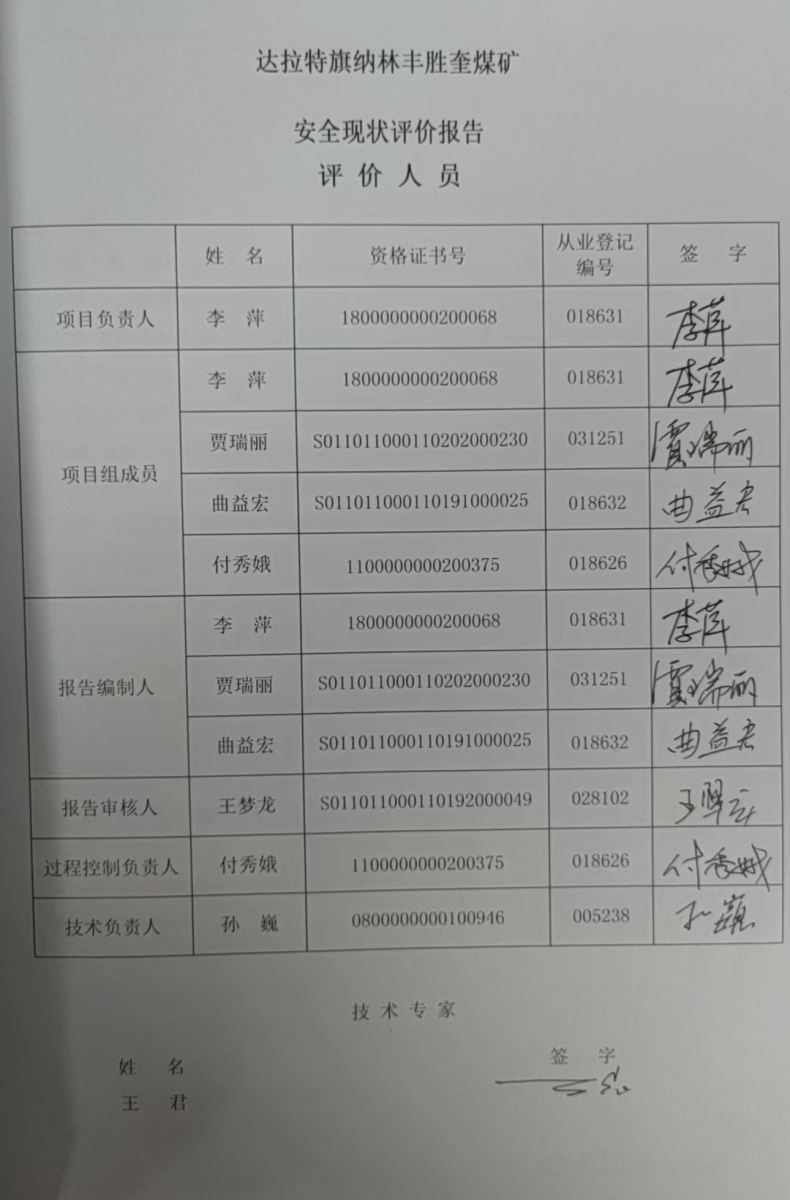 达拉特旗纳林丰胜奎煤矿
安全现状评价报告
评价人员
姓 名 资格证书号 从业登记编号 签 字
项目负责人 李 萍 1800000000200068 018631 李萍
项目组成员 李 萍 1800000000200068 018631 李萍
贾瑞丽 S011011000110202000230 031251 贾瑞丽
曲益宏 S011011000110191000025 018632 曲益宏
付秀娥 1100000000200375 018626 付秀娥
报告编制人 李 萍 1800000000200068 018631 李萍
贾瑞丽 S011011000110202000230 031251 贾瑞丽
曲益宏 S011011000110191000025 018632 曲益宏
报告审核人 王梦龙 S011011000110192000049 028102
过程控制负责人 付秀娥 1100000000200375 018626 付秀娥
技术负责人 孙 巍 0800000000100946 005238 孙巍
技术专家
姓 名 签 字
王 君